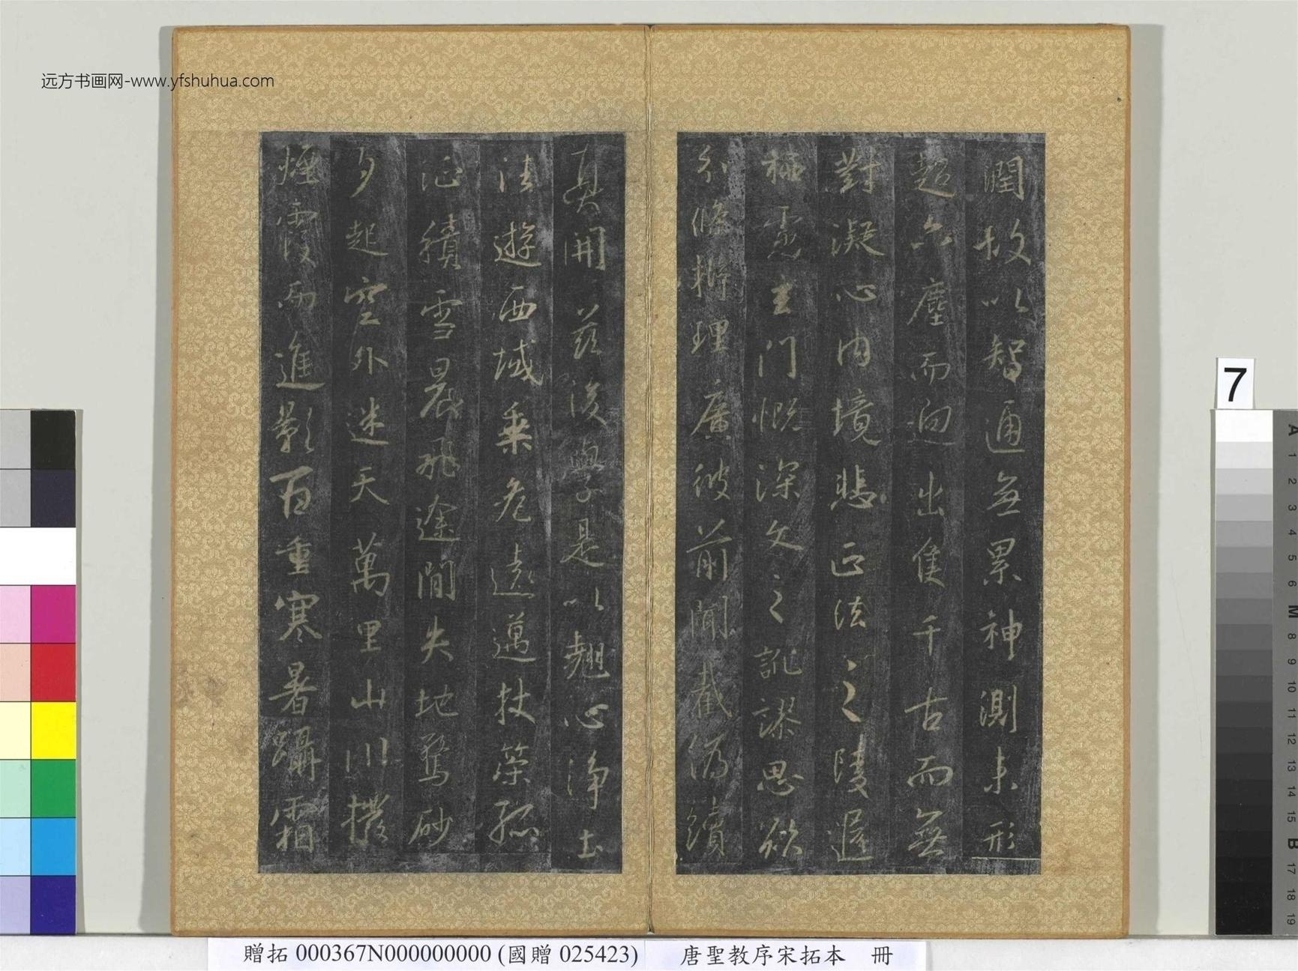 远方书画网-www.yfshuhua.com
潤故以智通無累神測未形
超六塵而迥出隻千古而無
對凝心內境悲正法之陵遲
栖慮玄門慨深文之訛謬思欲
分條析理廣彼前聞截偽續
真開茲後學是以翹心淨土
法遊西域乘危遠邁杖策孤
征積雪晨飛途間失地驚砂
夕起空外迷天萬里山川撥
煙霞而進影百重寒暑躡霜
7
A
1
2
3
4
5
6
M
8
9
10
11
12
13
14
15
B
17
18
19
贈拓 000367N000000000 (國贈 025423)
唐聖教序宋拓本 冊